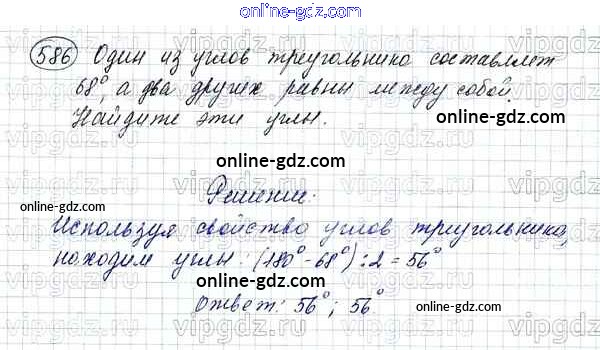 online-gdz.com
586 Один из углов треугольника составляет
68°, а два других равны между собой.
Найдите эти углы.
online-gdz.com
Решение:
online-gdz.com
Используя свойство углов треугольника,
находим углы: (180° - 68°) : 2 = 56°
online-gdz.com
Ответ: 56°; 56°
online-gdz.com
online-gdz.com